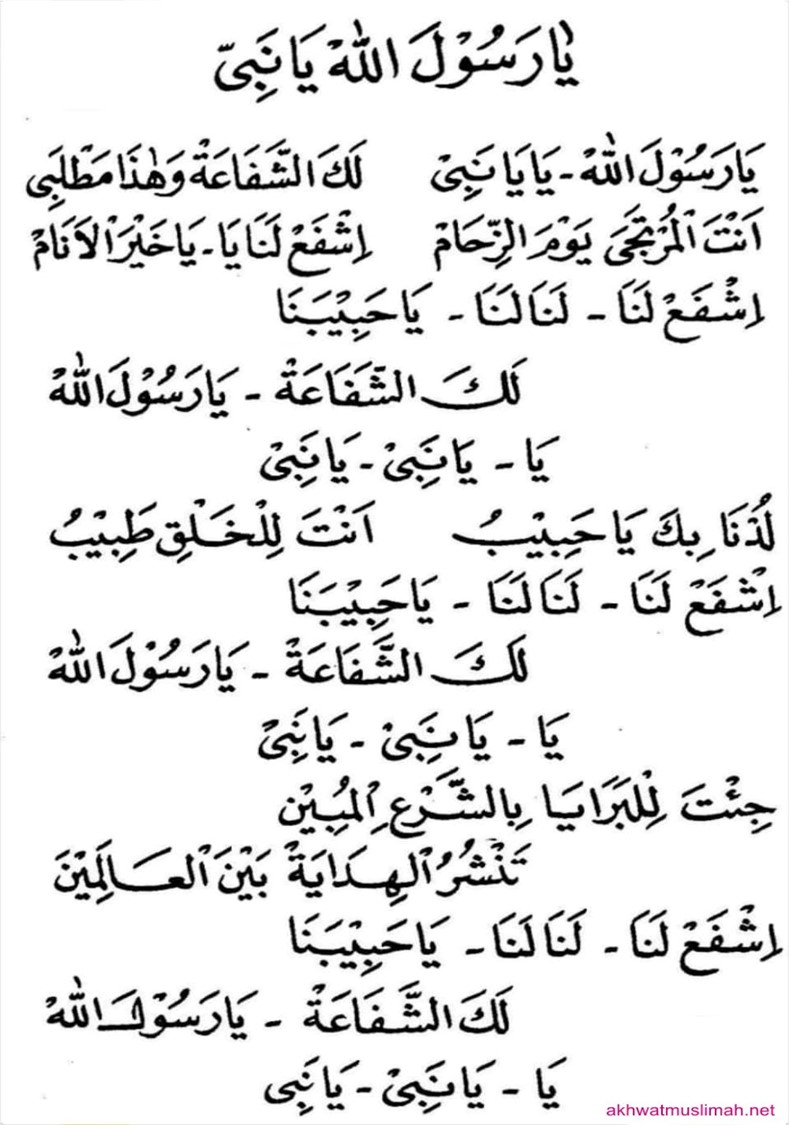 يٰا رَسُوْلَ اللهْ يَا نَبِىّ
يَا رَسُوْلَ اللهْ - يَا يَا نَبِىْ    لَكَ الشَّفَاعَةْ وَهٰذَا مَطْلَبِى
اَنْتَ الْمُرْتَجَى يَوْمَ الزِّحَامْ    اِشْفَعْ لَنَا يَا - يَا خَيْرَ الْاَنَامْ
اِشْفَعْ لَنَا - لَنَا لَنَا - يَا حَبِيْبَنَا
لَكَ الشَّفَاعَةْ - يَا رَسُوْلَ اللهْ
يَا - يَا نَبِىْ - يَا نَبِىْ
لُذْنَا بِكَ يَا حَبِيْبُ    اَنْتَ لِلْخَلْقِ طَبِيْبُ
اِشْفَعْ لَنَا - لَنَا لَنَا - يَا حَبِيْبَنَا
لَكَ الشَّفَاعَةْ - يَا رَسُوْلَ اللهْ
يَا - يَا نَبِىْ - يَا نَبِىْ
جِئْتَ لِلْبَرَايَا بِالشَّرْعِ الْمُبِيْن
تَنْشُرُ الْهِدَايَةْ بَيْنَ الْعَالَمِيْنَ
اِشْفَعْ لَنَا - لَنَا لَنَا - يَا حَبِيْبَنَا
لَكَ الشَّفَاعَةْ - يَا رَسُوْلَ اللهْ
يَا - يَا نَبِىْ - يَا نَبِى
akhwatmuslimah.net